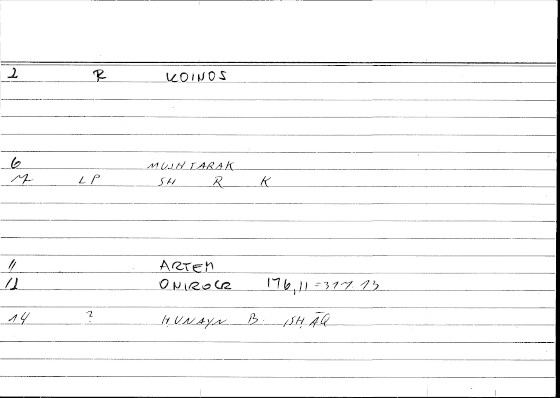 2 R KOINOS
6 MUSHTARAK
7 LP SH R K
11 ARTEM
12 ONIROCR 176,11 = 317 13
14 ? HUNAYN B. ISHĀQ